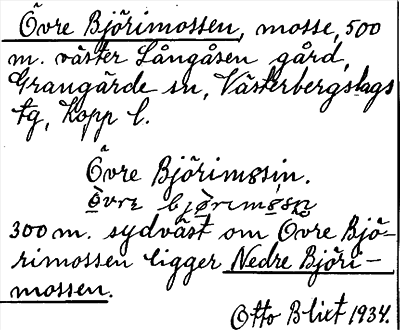 Övre Björimossen, mosse, 500
m. väster Långåsen gård,
Grangärde sn, Västerbergslags
tg, Kopp l.
Övre Björimosin.
300 m. sydväst om Övre Bjö-
rimossen ligger Nedre Björi-
mossen.
Otto Blixt 1934.